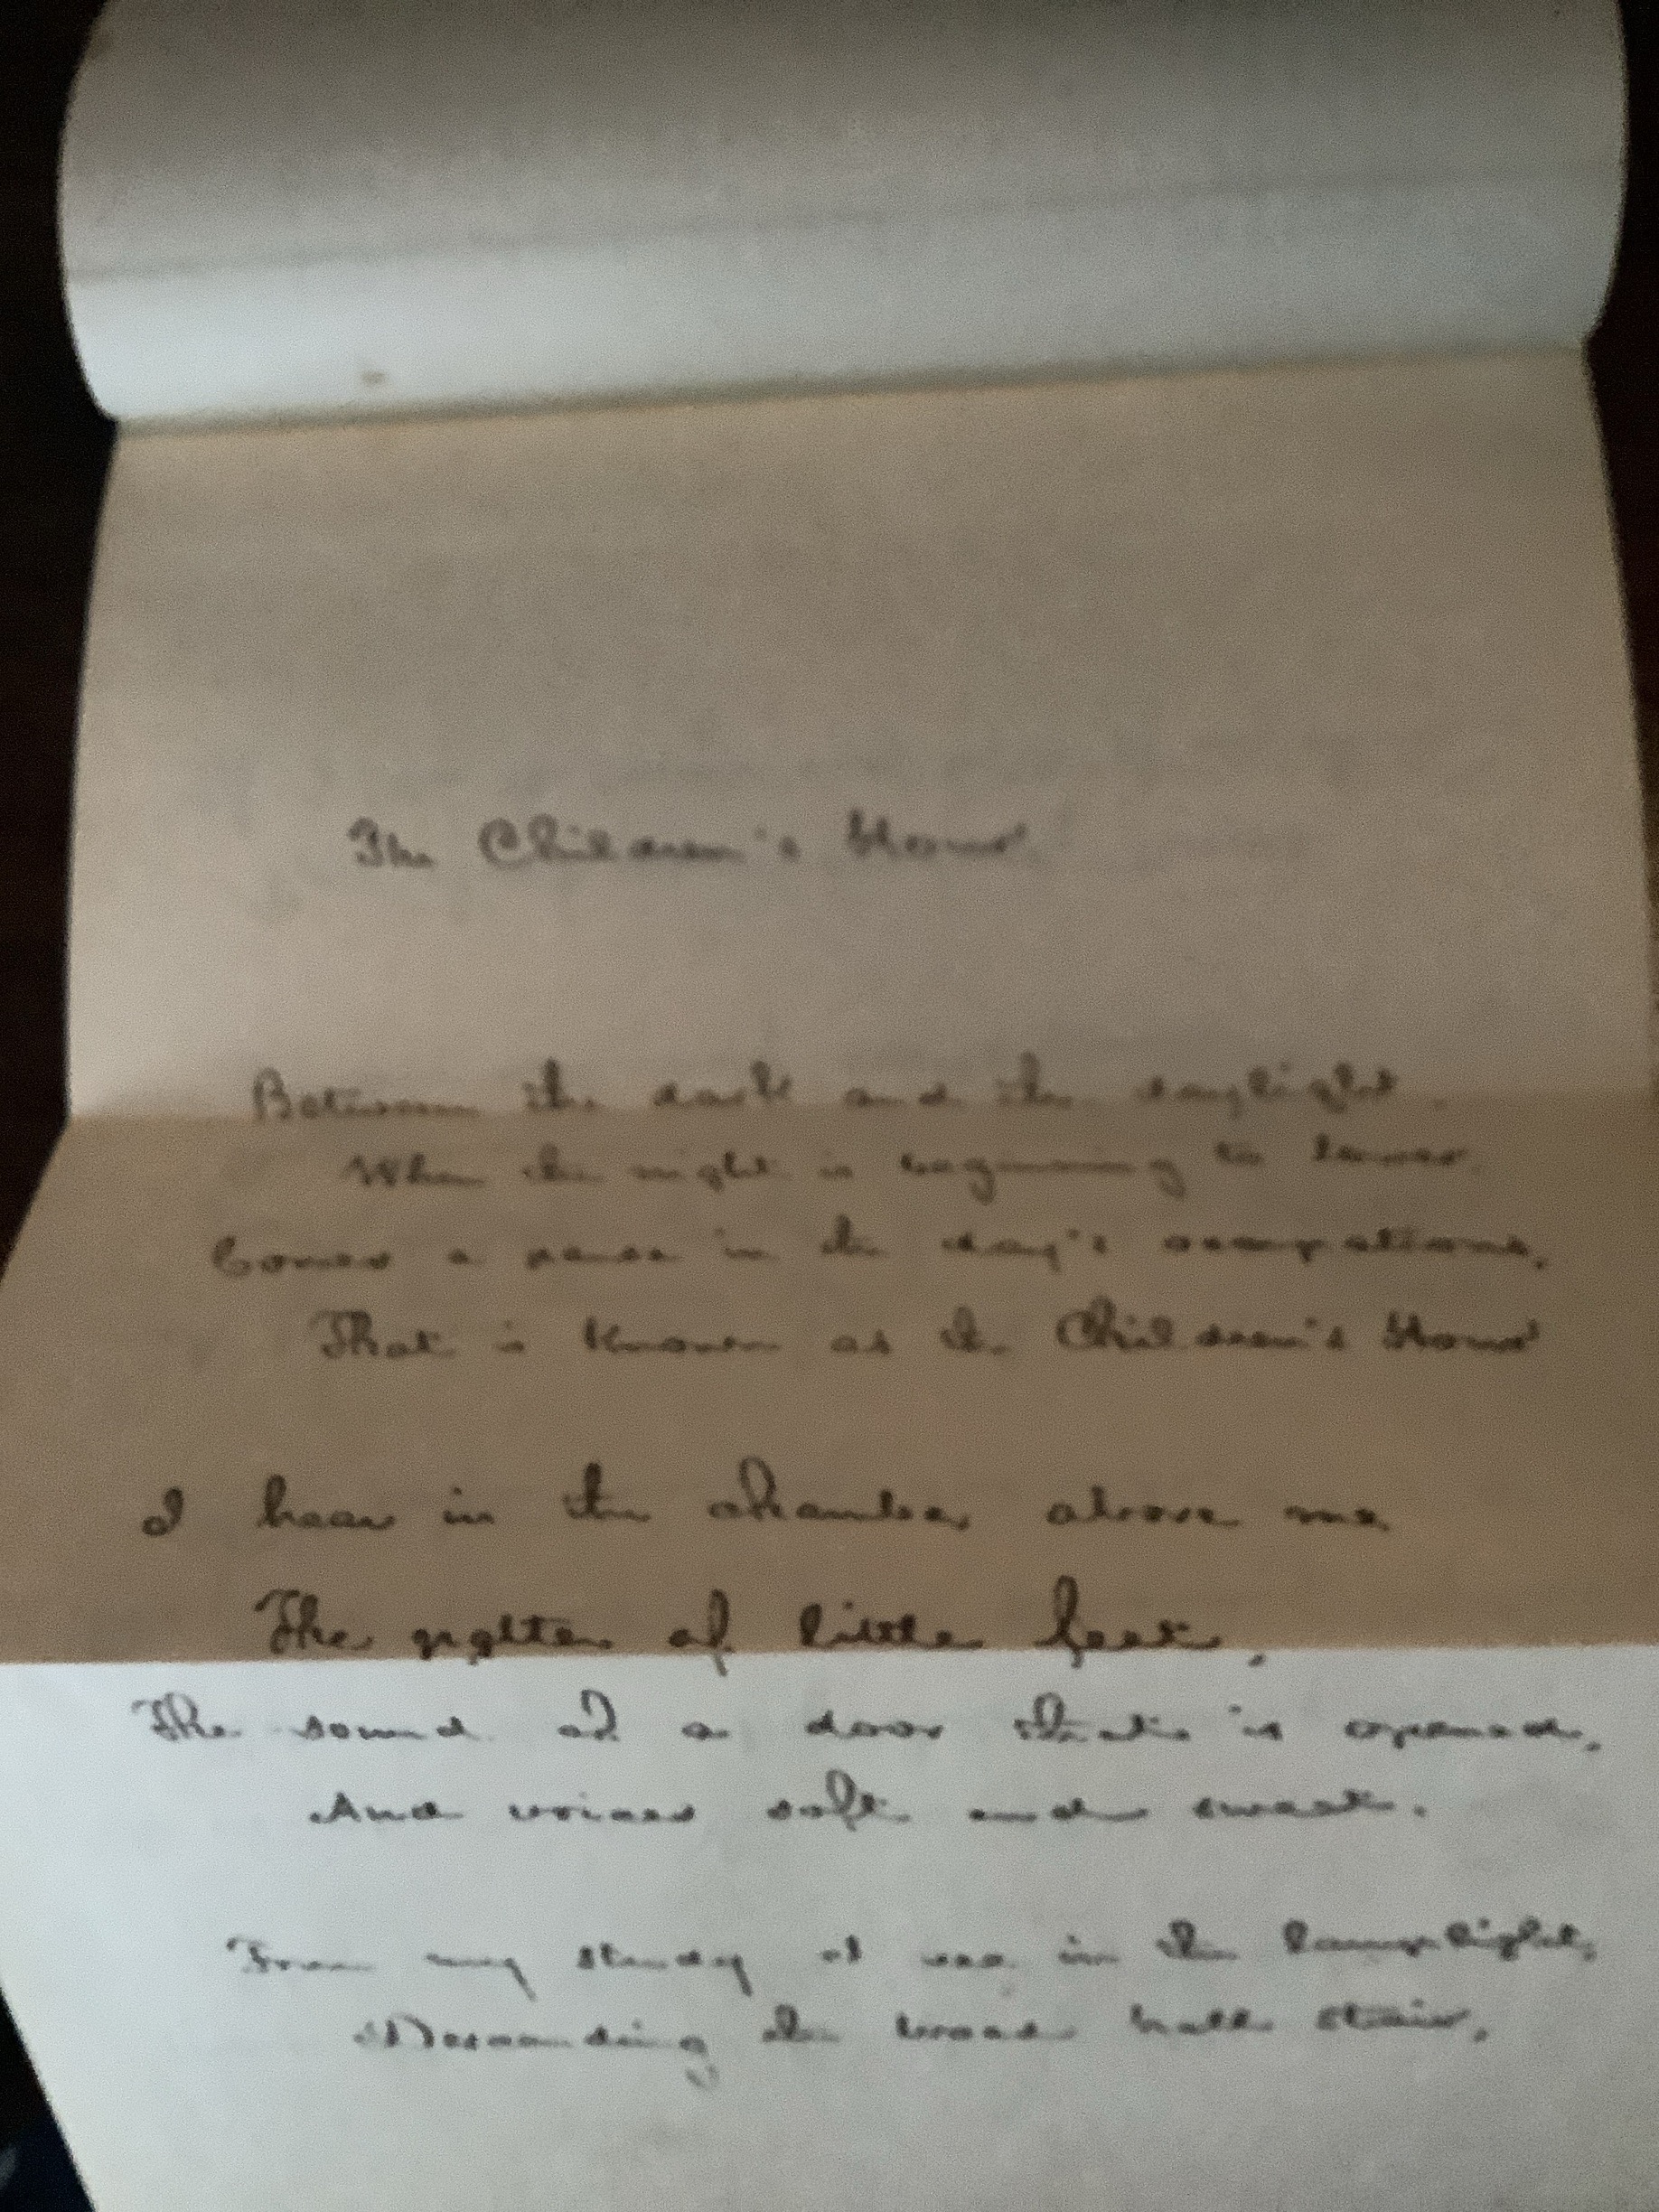 The Children's Hour
Between the dark and the daylight
When the night is beginning to lower
Comes a pause in the day's occupations,
That is known as the Children's Hour
I hear in the chamber above me
The patter of little feet,
The sound of a door that is opened,
And voices soft and sweet.
From my study I see in the lamplight,
Descending the broad hall stair,